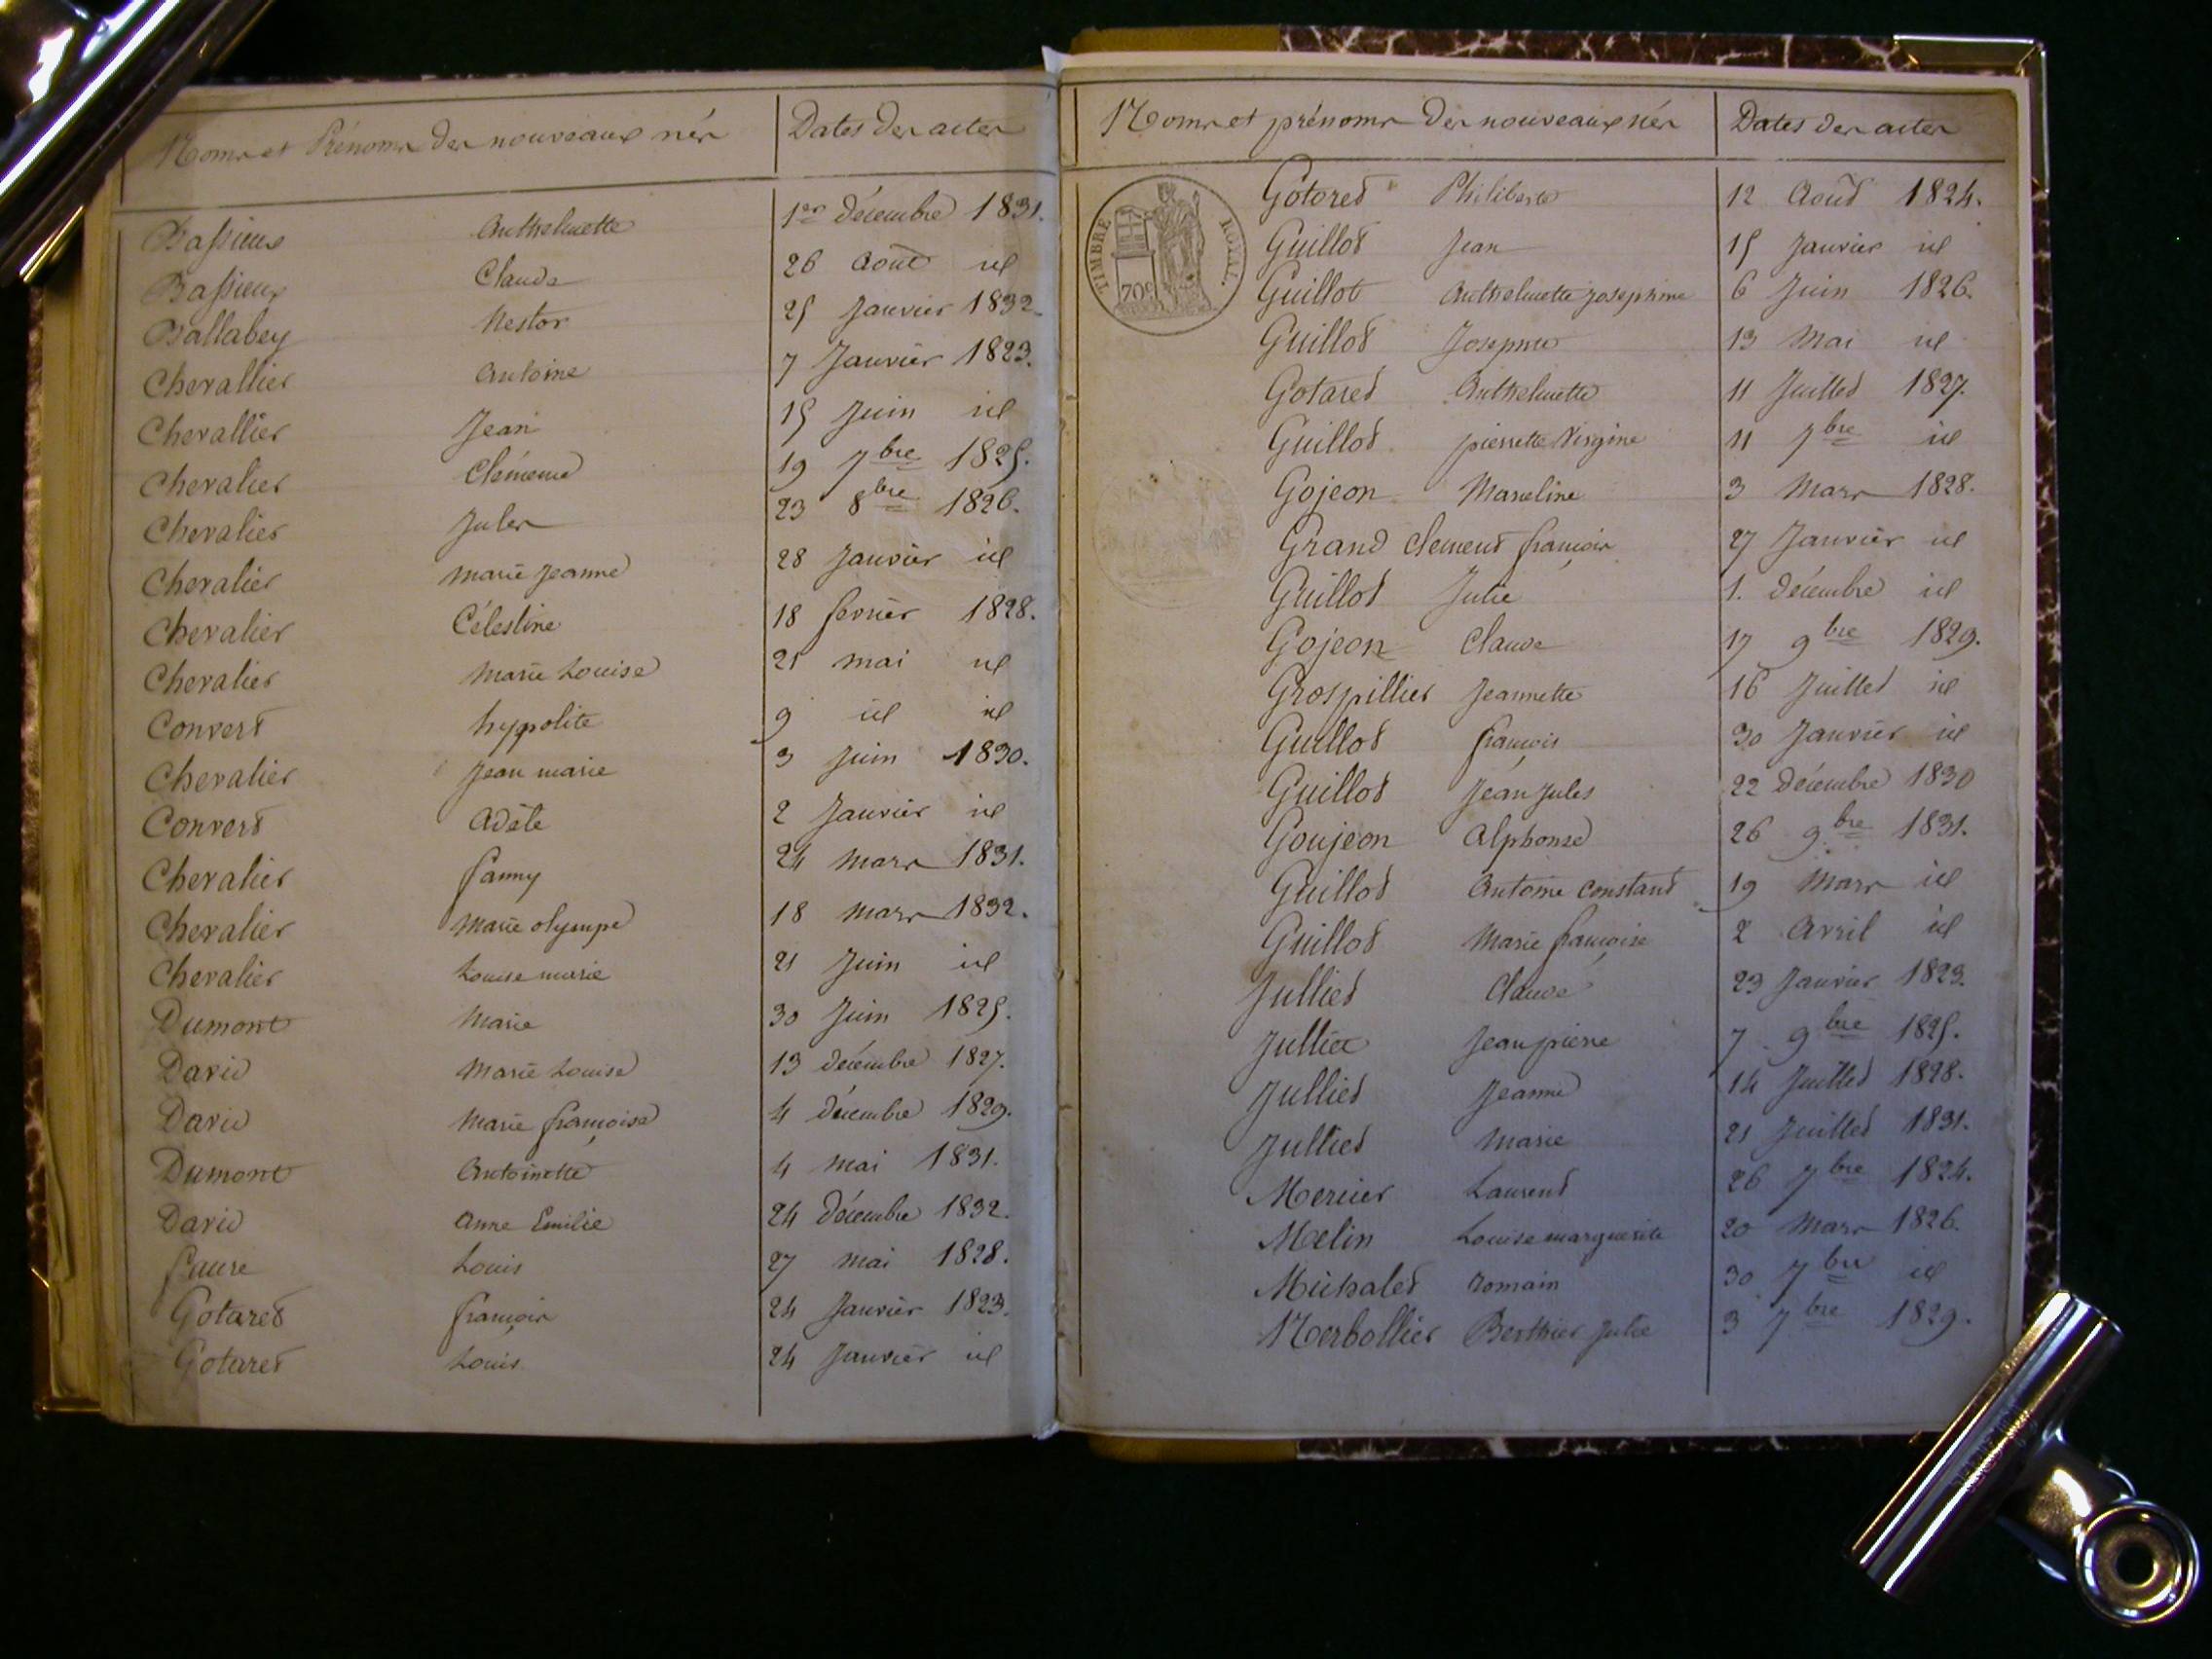 Noms et Prénoms des nouveaux nés Dates des actes
Bassieux Anthelmette 1er décembre 1831.
Bassieux Claude 26 août id
Ballabey Nestor 25 Janvier 1832.
Chevallier Antoine 7 Janvier 1823.
Chevallier Jean 15 Juin id
Chevalier Clémence 19 7bre 1825.
Chevalier Jules 23 8bre 1826.
Chevalier Marie Jeanne 28 Janvier id
Chevalier Célestine 18 fevrier 1828.
Chevalier Marie Louise 21 mai id
Convert hypolite 9 id id
Chevalier Jean marie 3 Juin 1830.
Convert Adèle 2 Janvier id
Chevalier fanny 24 mars 1831.
Chevalier Marie olympe 18 mars 1832.
Chevalier Louise marie 21 Juin id
Dumont Marie 30 Juin 1825.
David Marie Louise 13 décembre 1827.
David Marie françoise 4 décembre 1829.
Dumont Antoinette 4 mai 1831.
David Anne Emilie 24 décembre 1832.
faure Louis 27 mai 1828.
Gotaret françois 24 Janvier 1823.
Gotaret Louis 24 Janvier id
Noms et prénoms des nouveaux nés Dates des actes
TIMBRE ROYAL.
70c
Gotoret Philiberte 12 Août 1824.
Guillot Jean 15 Janvier id
Guillot Anthelmette Josephine 6 Juin 1826.
Guillot 13 Mai id
Gotaret Anthelmette 11 Juillet 1827.
Guillot pierrette Virgine 11 7bre id
Gojeon Marceline 3 Mars 1828.
Grand clement françois 27 Janvier id
Guillot Julie 1. décembre id
Gojeon Claude 17 9bre 1829.
Grospillier Jeannette 16 Juillet id
Guillot françois 30 Janvier id
Guillot Jean Jules 22 décembre 1830
Goujeon Alphonse 26 9bre 1831.
Guillot Antoine constant 19 Mars id
Guillot Marie françoise 2 Avril id
Julliet Claude 23 Janvier 1823.
Julliet Jean pierre 7 9bre 1825.
Julliet Jeanne 14 Juillet 1828.
Julliet Marie 21 Juillet 1831.
Mercier Laurent 26 7bre 1824.
Mœlin Louise marguerite 20 Mars 1826.
Michalet romain 30 7bre id
Nerbollier Berthier Julie 3 7bre 1829.